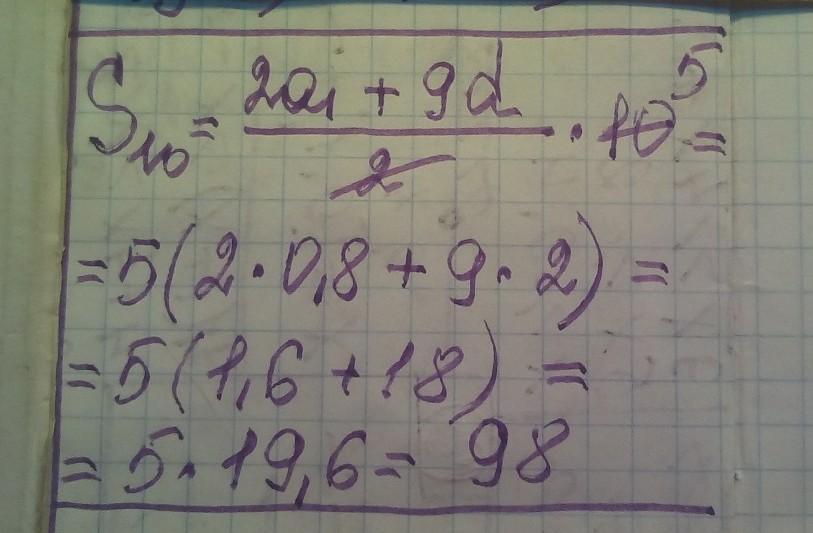 S₁₀ = (2a₁ + 9d)/2 · 10 5 =
= 5(2 · 0,8 + 9 · 2) =
= 5(1,6 + 18) =
= 5 · 19,6 = 98